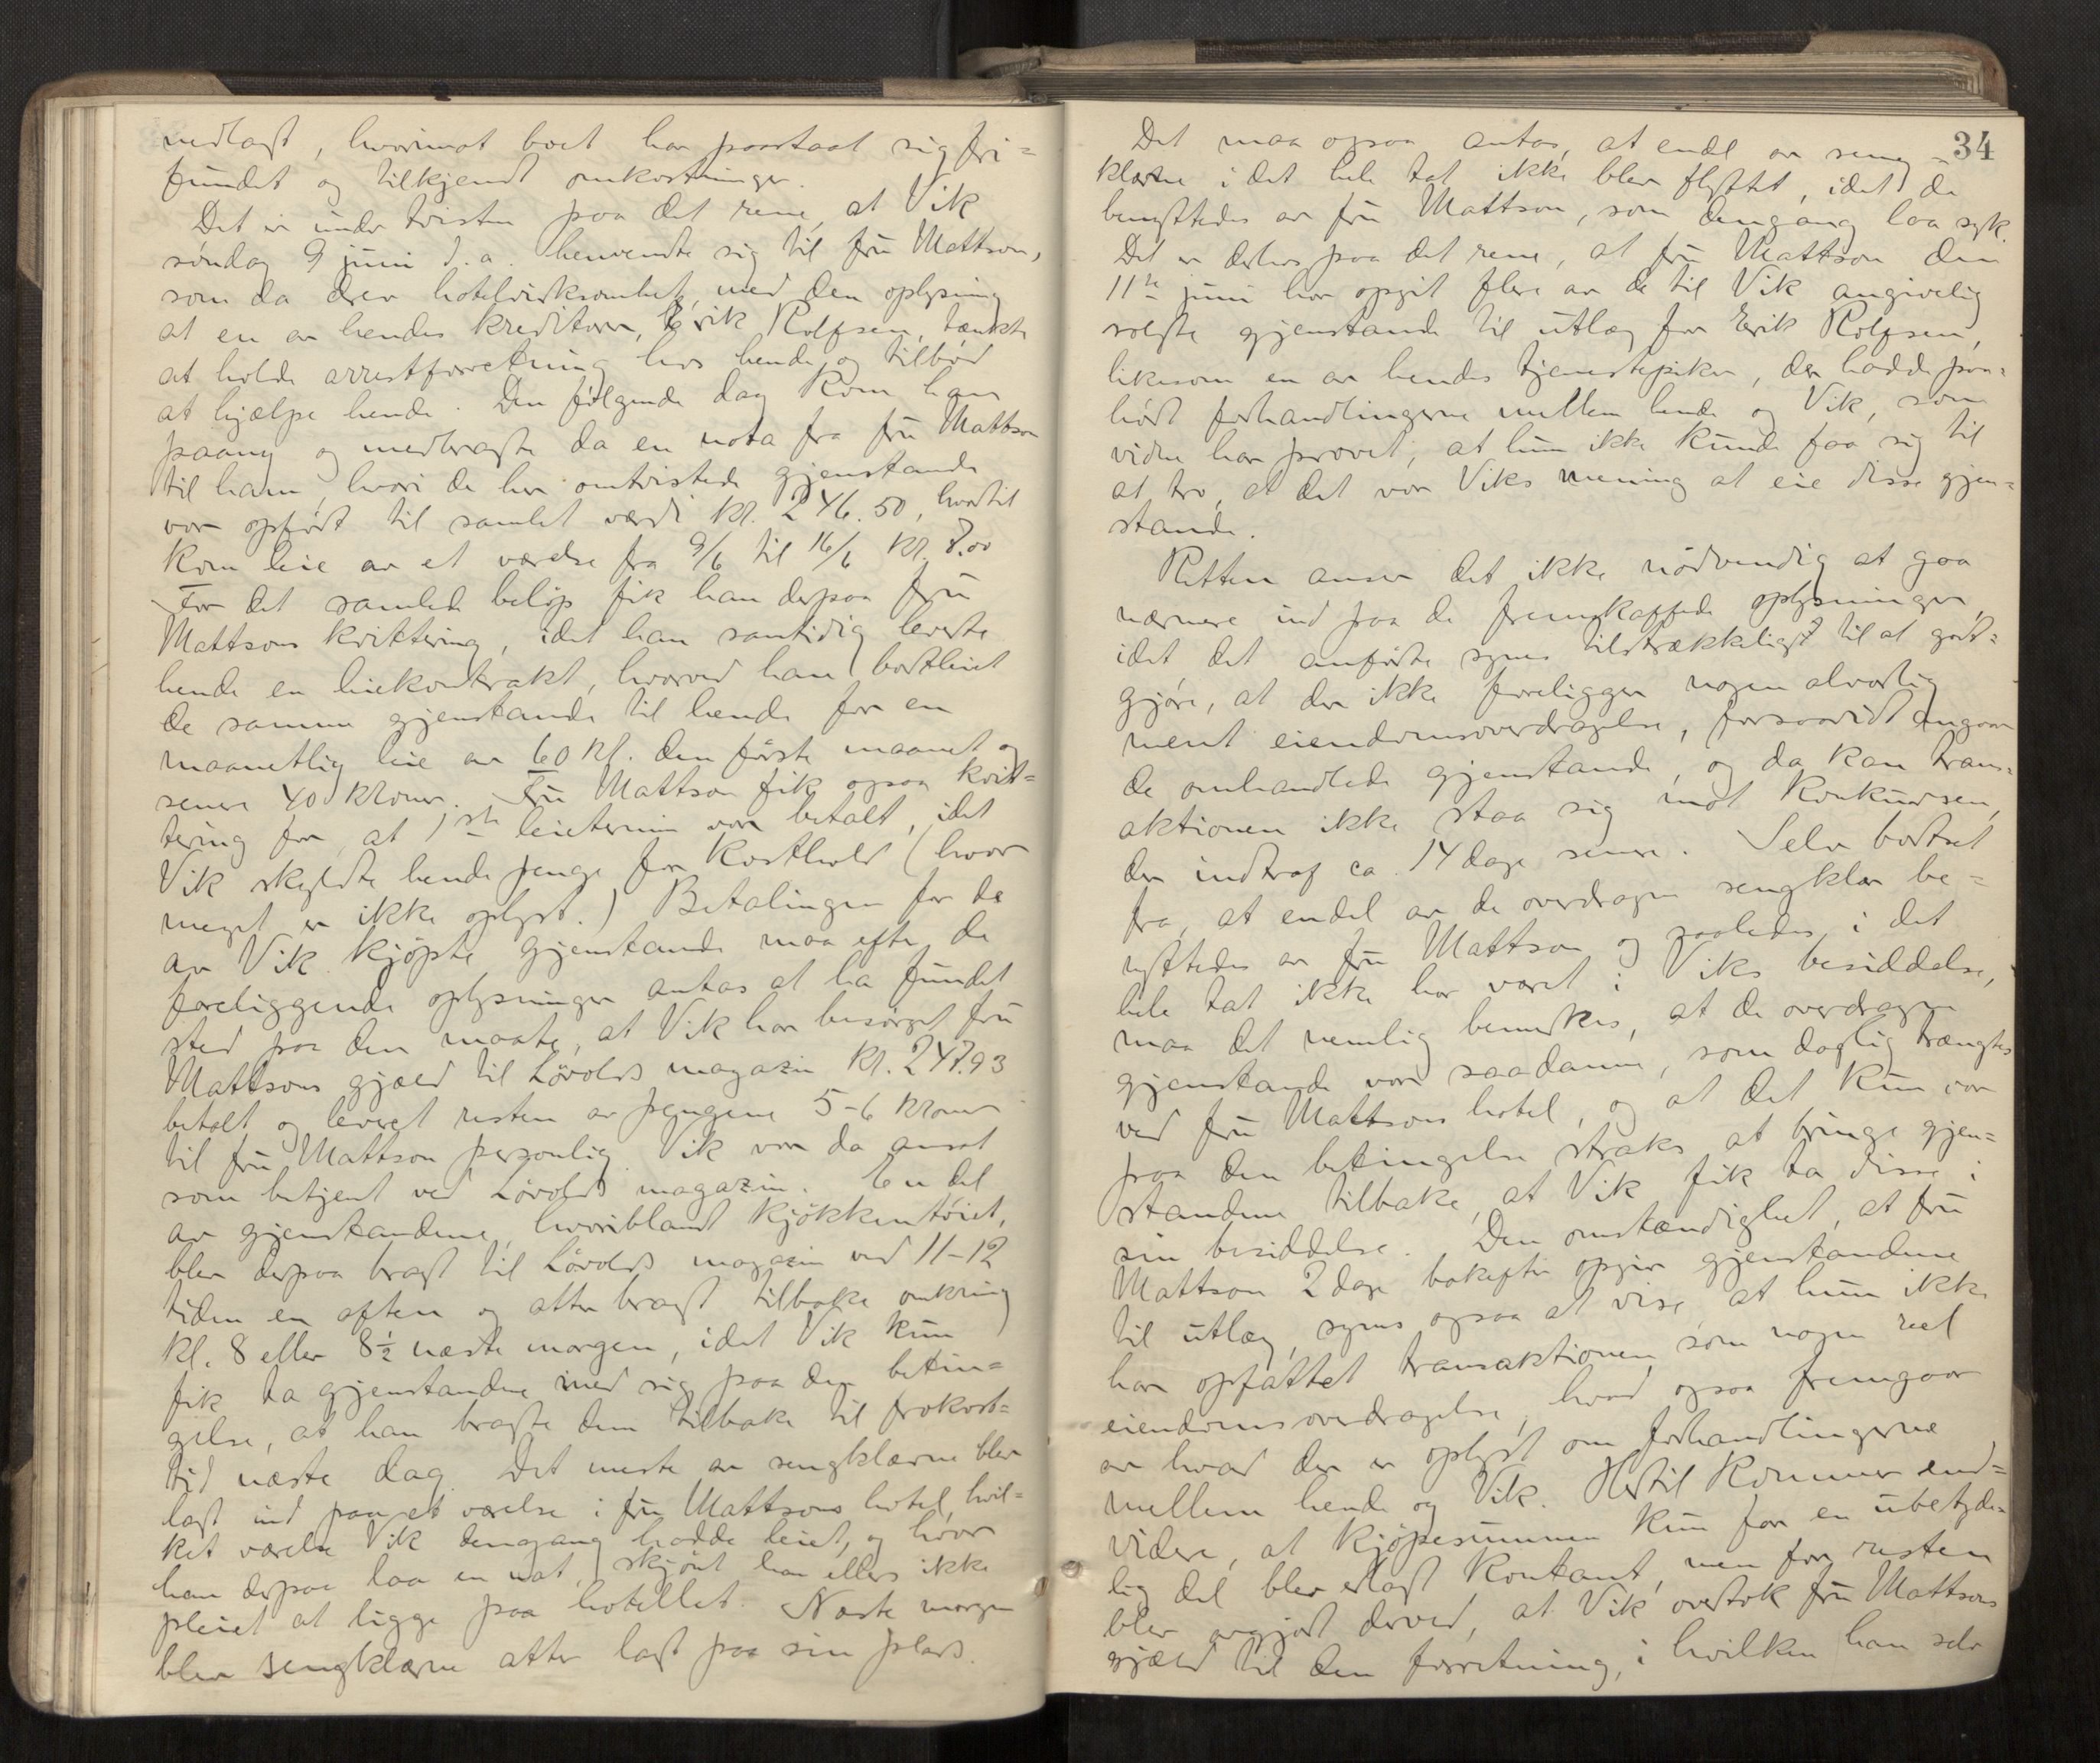 nedlagt, hvorimot boet har paastaat sig fri=
fundet og tilkjendt omkostninger.
Det er under tvisten paa det rene, at Vik
søndag 9 juni d. a. henvendte sig til fru Mattson,
som da drev hotelvirksomhet, med den oplysning
at en av hendes kreditorer, Erik Rolfsen, tænkte
at holde arrestforretning hos hende og tilbød
at hjælpe hende. Den følgende dag kom han
paany og medbragte da en nota fra fru Mattson
til ham, hvori de her omtvistede gjenstande
var opført til samlet værdi kr. 246.50, hvortil
kom leie av et værelse fra 9/6 til 16/6 kr. 8.00
For det samlede beløp fik han derpaa fru
Mattsons kvittering, idet han samtidig leverte
hende en leiekontrakt, hvorved han bortleiet
de samme gjenstande til hende for en
maanetlig leie av 60 kr. den første maanet og
senere 40 kroner. Fru Mattson fik ogsaa kvit=
tering for, at 1ste leietermin var betalt, idet
Vik skyldte hende penge for kosthold (hvor
meget er ikke oplyst.) Betalingen for de
av Vik kjøpte gjenstande maa efter de
foreliggende oplysninger antas at ha fundet
sted paa den maate, at Vik har besørget fru
Mattsons gjæld til Løvolds magazin kr. 247.93
betalt og leveret resten av pengene 5-6 kroner
til fru Mattson personlig. Vik var da ansat
som betjent ved Løvolds magazin. En del
av gjenstandene, hvoriblandt kjøkkentøiet,
blev derpaa bragt til Løvolds magazin ved 11-12
tiden en aften og atter bragt tilbake omkring
kl. 8 eller 8½ næste morgen, idet Vik kun
fik ta gjenstandene med sig paa den betin=
gelse, at han bragte dem tilbake til frokost=
tid næste dag. Det meste av sengklærne blev
lagt ind paa et værelse i fru Mattsons hotel, hvil=
ket værelse Vik dengang hadde leiet, og hvor
han derpaa laa en nat, skjønt han ellers ikke
pleiet at ligge paa hotellet. Næste morgen
blev sengklærne atter lagt paa sin plads.
34
Det maa ogsaa antas, at endel av seng=
klærne i det hele tat ikke blev flyttet, idet de
benyttedes av fru Mattson, som dengang laa syk.
Det er derhos paa det rene, at fru Mattson den
11te juni har opgit flere av de til Vik angivelig
solgte gjenstande til utlæg for Erik Rolfsen,
likesom en av hendes tjenestepiker, der hadde paa=
hørt forhandlingerne mellem hende og Vik, som
vidne har prøvet, at hun ikke kunde faa sig til
at tro, at det var Viks mening at eie disse gjen=
stande.
Retten anser det ikke nødvendig at gaa
nærmere ind paa de fremskaffede oplysninger,
idet det anførte synes tilstrækkeligt til at godt=
gjøre, at der ikke foreligger nogen alvorlig
ment eiendomsoverdragelse, forsaavidt angaar
de omhandlede gjenstande, og da kan trans=
aktionen ikke staa sig mot konkursen,
der indtraf ca. 14 dage senere. Selv bortset
fra, at endel av de overdragne sengklær be=
nyttedes av fru Mattson og saaledes i det
hele tat ikke har været i Viks besiddelse,
maa det nemlig bemerkes, at de overdragne
gjenstande var saadanne, som daglig trængtes
ved fru Mattsons hotel, og at det kun var
paa den betingelse straks at bringe gjen=
standene tilbake, at Vik fik ta disse i
sin besiddelse. Den omstændighet, at fru
Mattson 2 dage bakefter opgir gjenstandene
til utlæg, synes ogsaa at vise, at hun ikke
har opfattet transaktionen som nogen reel
eiendomsoverdragelse, hvad ogsaa fremgaar
av hvad der er oplyst om forhandlingerne
mellem hende og Vik. Hertil kommer end=
videre, at kjøpesummen kun for en ubetyde=
lig del blev erlagt kontant, men for resten
blev avgjort derved, at Vik overtok fru Mattsons
gjæld til den forretning, i hvilken han selv